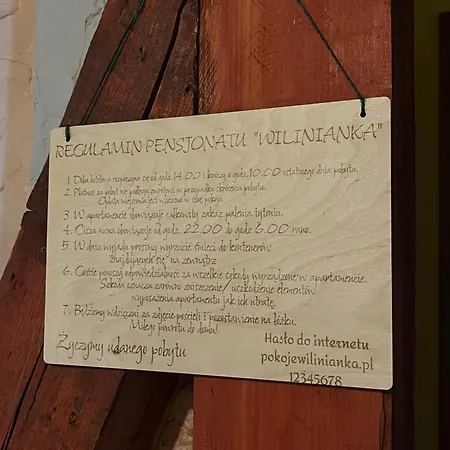 REGULAMIN PENSJONATU "WILINIANKA"
1. Doba hotelowa rozpoczyna się od godz. 14.00 i kończy o godz. 10.00 ostatniego dnia pobytu.
2. Płatność za pobyt nie podlega zwrotowi w przypadku skrócenia pobytu.
Opłata miejscowa jest wliczona w cenę pokoju.
3. W apartamencie obowiązuje całkowity zakaz palenia tytoniu.
4. Cisza nocna obowiązuje od godz. 22.00 do godz 6.00 rano.
5. W dniu wyjazdu prosimy wyrzucić śmieci do kontenerów
znajdujących się na zewnątrz
6. Goście ponoszą odpowiedzialność za wszelkie szkody wyrządzone w apartamencie.
Szkoda oznacza zarówno zniszczenie/ uszkodzenie elementów
wyposażenia apartamentu jak ich utratę.
7. Będziemy wdzięczni za zdjęcie pościeli i pozostawienie na łóżku.
Miłego powrotu do domu!
Życzymy udanego pobytu
Hasło do internetu
pokojewilinianka.pl
12345678